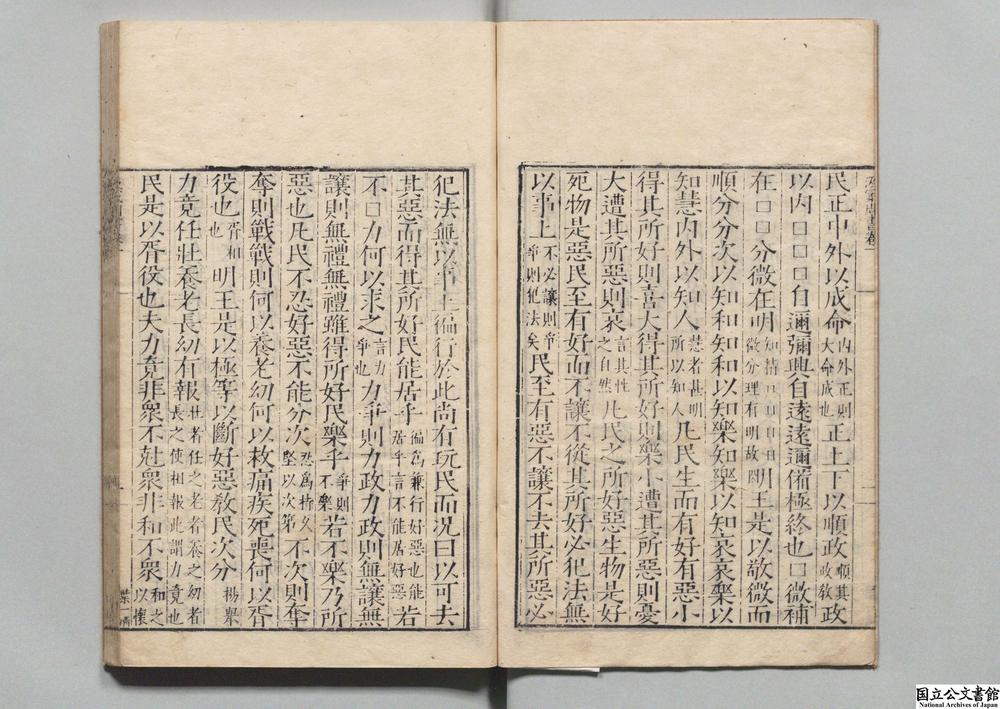 民正中外以成命内外正則大命成也正上下以順政順其政政教
以内口口口自邇彌興自遠遠邇備極終也口微補
在口口口分微在明知情口口口自微分理有明故明王是以敬微而
順分分次以知和知和以知樂知樂以知哀哀樂以
知慧内外以知人慧者甚明所以知人凡民生而有好有惡小
得其所好則喜大得其所好則樂小遭其所惡則憂
大遭其所惡則哀言其性之自然凡民之所好惡生物是好
死物是惡民至有好而不讓不從其所好必犯法無
以事上不必讓則爭爭則犯法矣民至有惡不讓不去其所惡必
犯法無以事上徧行於此尚有玩民而况曰以可去
其惡而得其所好民能居乎徧爲兼行好惡也能居乎言不能居好惡若
不口力何以求之言力爭也力爭則力政力政則無讓無
讓則無禮無禮雖得所好民樂乎爭則不樂若不樂乃所
惡也凡民不忍好惡不能分次忍爲持久堅以次第不次則奪
奪則戰戰則何以養老幼何以救痛疾死喪何以胥
役也胥相也明王是以極等以斷好惡教民次分揚舉
力竟任壯養老長幼有報壯者任之老者養之幼者長之使相報此謂力竟也
民是以胥役也夫力竟非衆不尅衆非和不衆和之以懷
国立公文書館
National Archives of Japan